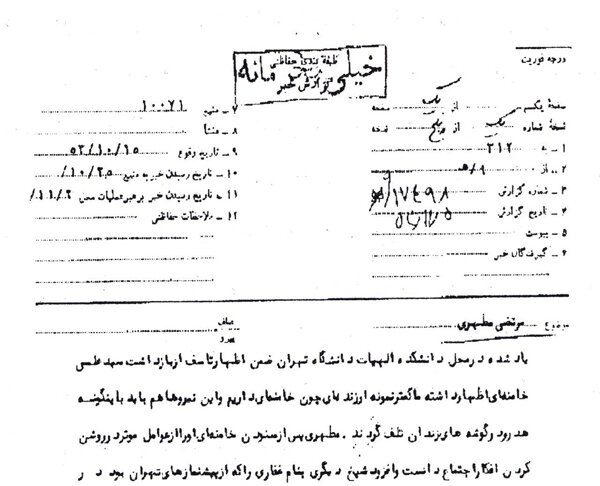 درجه فوریت
طبقه بندی حفاظتی
خیلی محرمانه
گزارش خبر
صفحهٔ یکم از یک صفحه
نسخهٔ شماره یک از پنج نسخه
۱ ـ به ۳۱۲
۲ ـ از ۹/ه
۳ ـ شماره گزارش ۱۷۴۹۸/
۴ ـ تاریخ گزارش
۵ ـ پیوست
۶ ـ گیرندگان خبر
۷ ـ منبع ۱۰۰۷۱
۸ ـ منشأ
۹ ـ تاریخ وقوع ۵۳/۱۰/۱۵
۱۰ ـ تاریخ رسیدن خبر به منبع ۱۰/۲۵/
۱۱ ـ تاریخ رسیدن خبر برهبر عملیات ۱۱/۲/
۱۲ ـ ملاحظات حفاظتی
موضوع مرتضی مطهری
عطف
پیرو
یاد شده در محل دانشکده الهیات دانشگاه تهران ضمن اظهار تاسف از بازداشت سید علی
خامنه‌ای اظهار داشته ما کمتر نمونه ارزنده‌ای چون خامنه‌ای داریم و این نیروها هم باید باینگونه
هدر رود و گوشه های زندان تلف گردند . مطهری پس از ستودن خامنه‌ای او را از عوامل موثر در روشن
کردن افکار اجتماع دانست و افزود شیخ دیگری بنام غفاری را که از پیشنمازهای تهران بود در